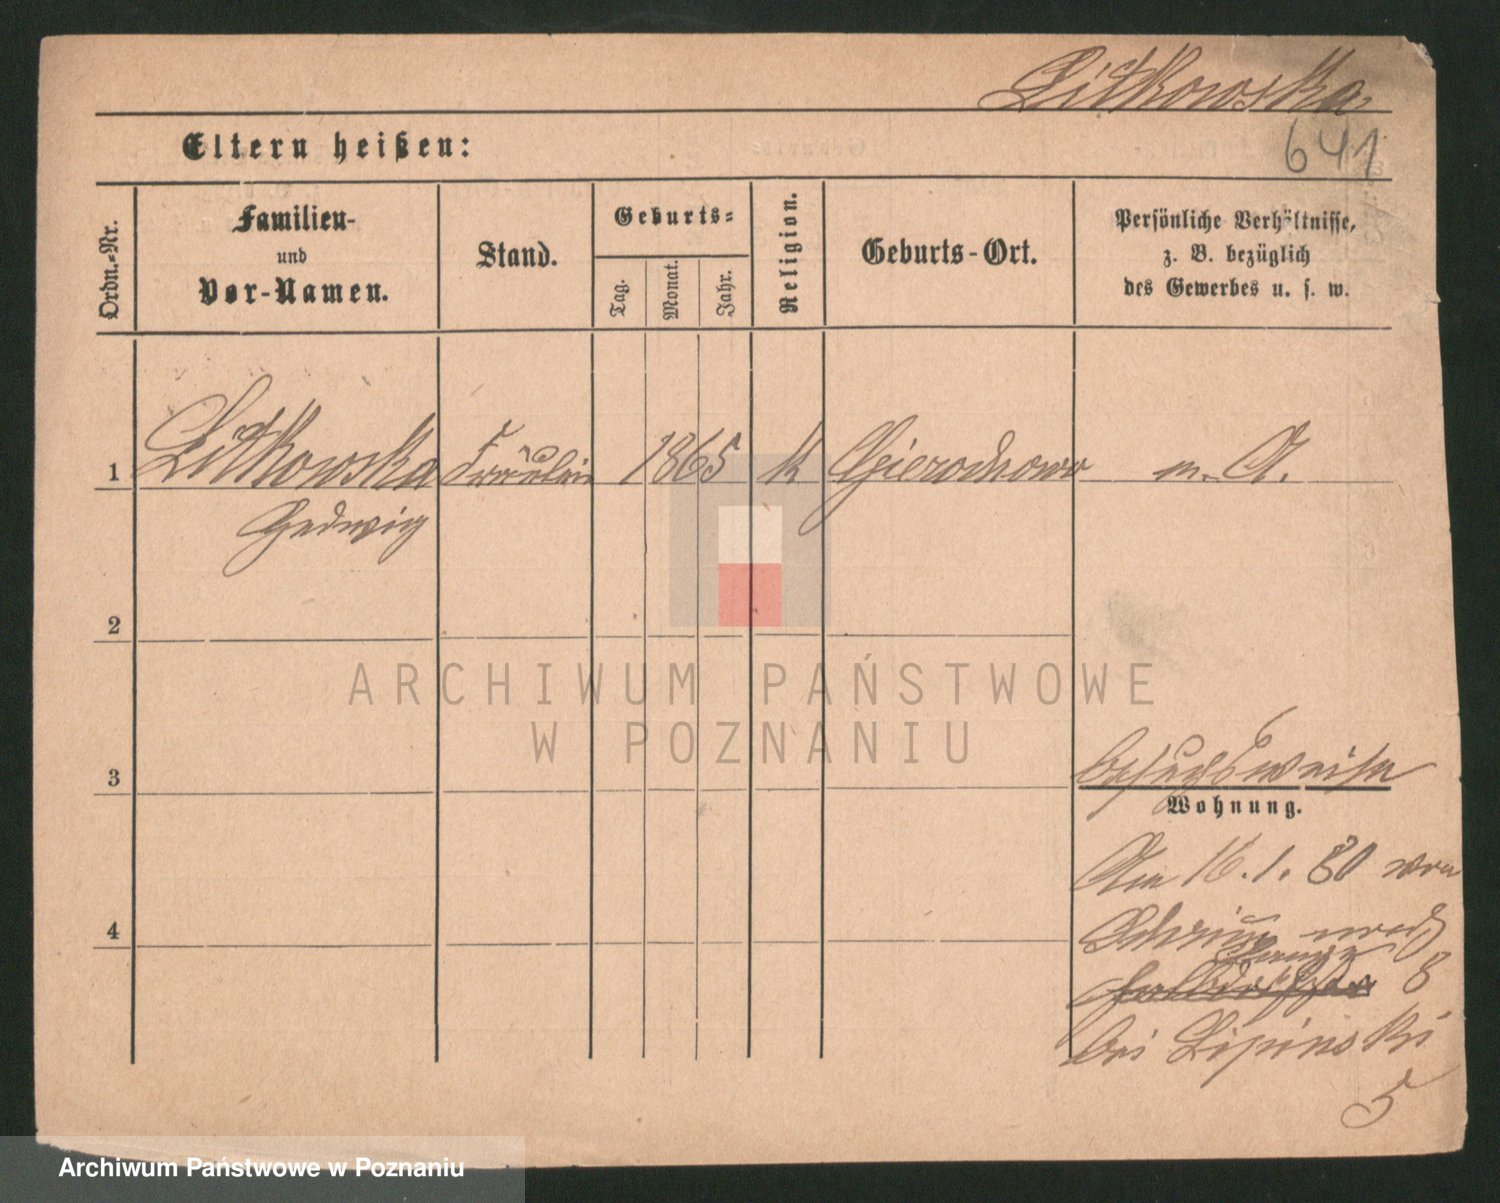 Litkowska
641
Eltern heißen:
Ordn.-Nr.
Familien-
und
Vor-Namen.
Stand.
Geburts-
Tag.
Monat.
Jahr.
Religion.
Geburts-Ort.
Persönliche Verhältnisse,
z. B. bezüglich
des Gewerbes u. s. w.
1 Litkowska Fräulein 1865 k
Hedwig
2
ARCHIWUM PAŃSTWOWE
W POZNANIU
3 besuchsweise
Wohnung.
Am 16.1.80 von
4 nach
Lange
8
bei Lipinski
5
Archiwum Państwowe w Poznaniu